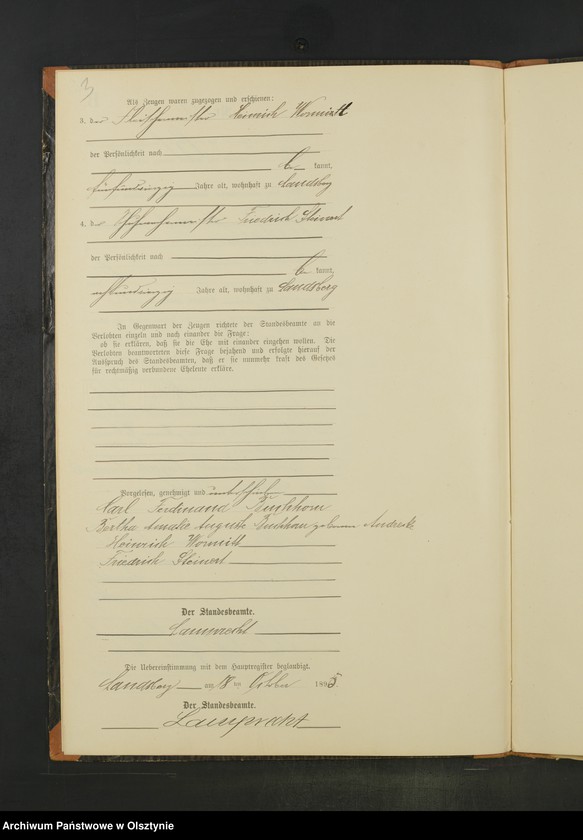 3
Als Zeugen waren zugezogen und erschienen:
3. der Fleischermeister Heinrich Wormitt
der Persönlichkeit nach
be kannt,
fünfundvierzig Jahre alt, wohnhaft zu Landsberg
4. der Friedrich Steinert
der Persönlichkeit nach
be kannt,
Jahre alt, wohnhaft zu Landsberg
In Gegenwart der Zeugen richtete der Standesbeamte an die
Verlobten einzeln und nach einander die Frage:
ob sie erklären, daß sie die Ehe mit einander eingehen wollen. Die
Verlobten beantworteten diese Frage bejahend und erfolgte hierauf der
Ausspruch des Standesbeamten, daß er sie nunmehr kraft des Gesetzes
für rechtmäßig verbundene Eheleute erkläre.
Vorgelesen, genehmigt und unterschrieben
Carl Ferdinand
Bertha Amalie Auguste geborene
Heinrich Wormitt
Friedrich Steinert
Der Standesbeamte.
Lamprecht
Die Uebereinstimmung mit dem Hauptregister beglaubigt.
Landsberg am 18 ten October 1895
Der Standesbeamte.
Lamprecht
Archiwum Państwowe w Olsztynie